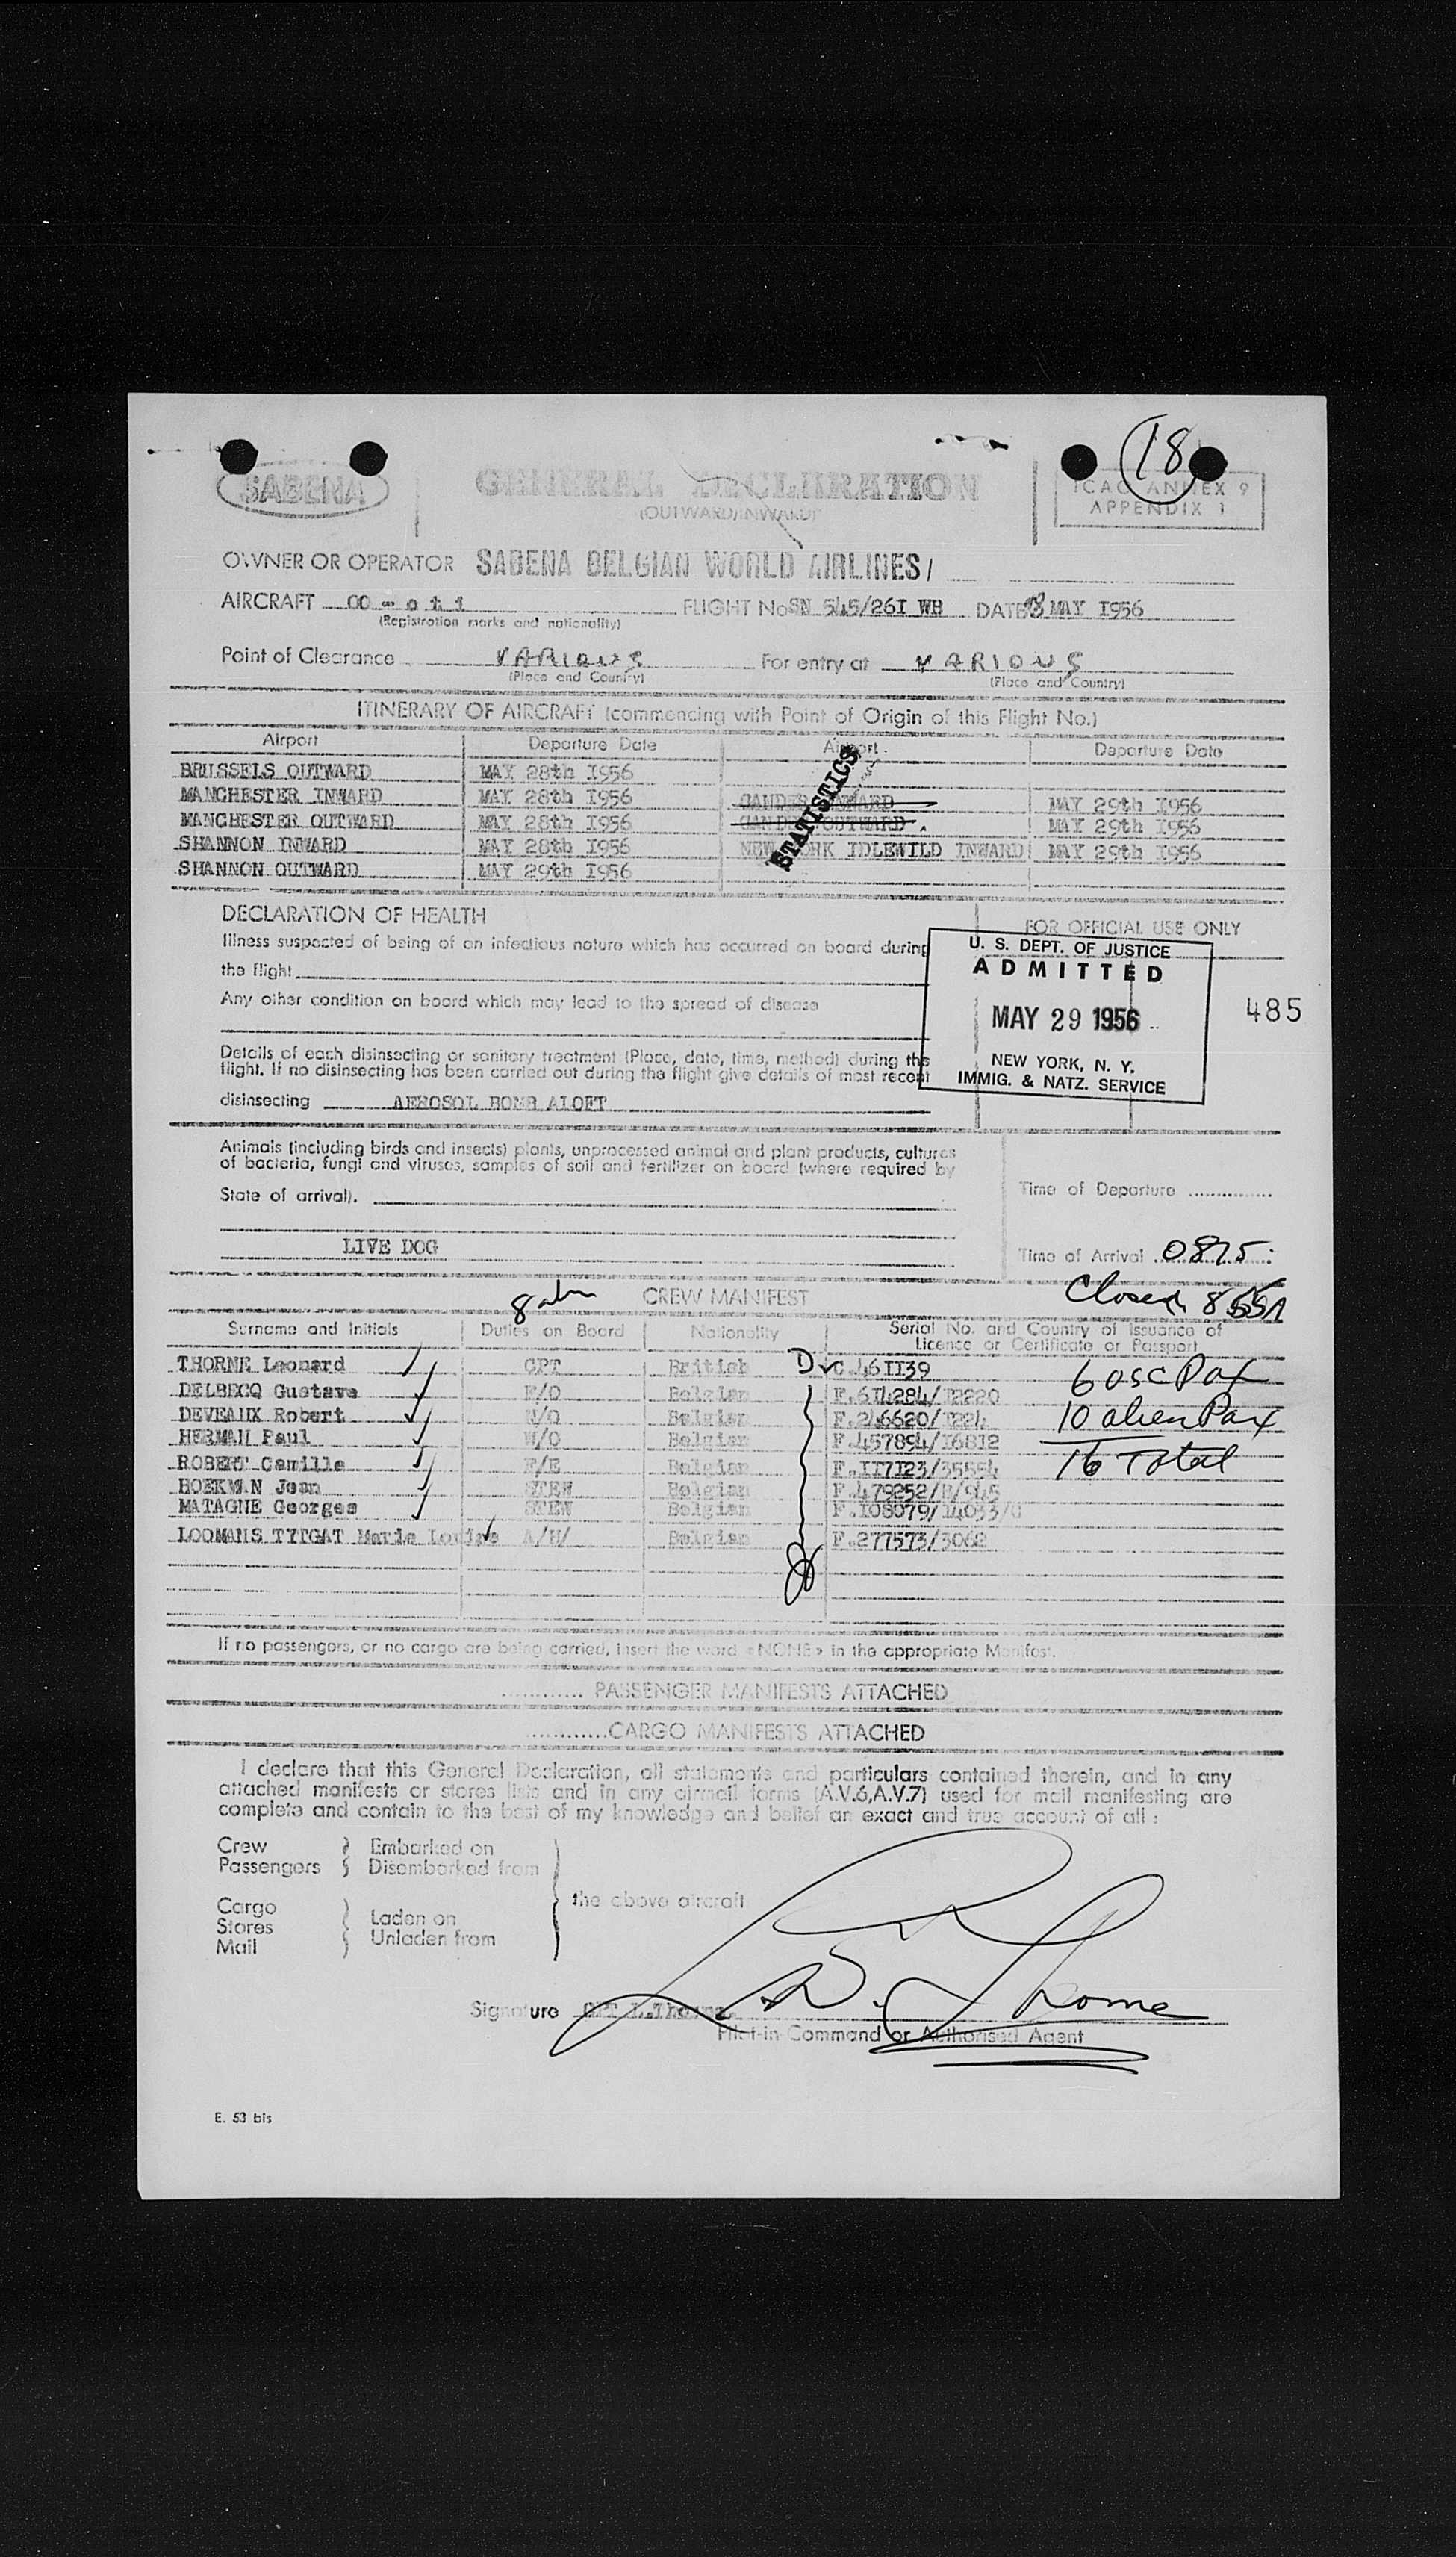 18
SABENA
GENERAL DECLARATION
(OUTWARD/INWARD)
ICAO ANNEX 9
APPENDIX 1
OWNER OR OPERATOR SABENA BELGIAN WORLD AIRLINES/
AIRCRAFT OO - c t i FLIGHT No SN 545/261 WB DATE 28 MAY 1956
(Registration marks and nationality)
Point of Clearance VARIOUS For entry at VARIOUS
(Place and Country) (Place and Country)
ITINERARY OF AIRCRAFT (commencing with Point of Origin of this Flight No.)
Airport Departure Date Airport Departure Date
BRUSSELS OUTWARD MAY 28th 1956
MANCHESTER INWARD MAY 28th 1956 GANDER INWARD MAY 29th 1956
MANCHESTER OUTWARD MAY 28th 1956 GANDER OUTWARD MAY 29th 1956
SHANNON INWARD MAY 28th 1956 NEW YORK IDLEWILD INWARD MAY 29th 1956
SHANNON OUTWARD MAY 29th 1956
STATISTICS
DECLARATION OF HEALTH
Illness suspected of being of an infectious nature which has occurred on board during
the flight
Any other condition on board which may lead to the spread of disease
Details of each disinsecting or sanitary treatment (Place, date, time, method) during the
flight. If no disinsecting has been carried out during the flight give details of most recent
disinsecting AEROSOL BOMB ALOFT
FOR OFFICIAL USE ONLY
U. S. DEPT. OF JUSTICE
ADMITTED
MAY 29 1956
NEW YORK, N. Y.
IMMIG. & NATZ. SERVICE
485
Animals (including birds and insects) plants, unprocessed animal and plant products, cultures
of bacteria, fungi and viruses, samples of soil and fertilizer on board (where required by
State of arrival).
LIVE DOG
Time of Departure
Time of Arrival 0815
Closed 855A
CREW MANIFEST
Surname and Initials Duties on Board Nationality Serial No. and Country of Issuance of
Licence or Certificate or Passport
THORNE Leonard CPT British D C.461139
DELBECQ Gustave F/O Belgian F.614284/12220
DEVEAUX Robert N/O Belgian F.246620/1224
HERMAN Paul W/O Belgian F.457894/16812
ROBERT Camille F/E Belgian F.117123/35554
HOEKMAN Jean STEW Belgian F.479252/B/945
MATAGNE Georges STEW Belgian F.108079/14033/C
LOOMANS TYTGAT Marie Louise A/H/ Belgian F.277573/3062
6 USC Pax
10 alien Pax
16 Total
If no passengers, or no cargo are being carried, insert the word «NONE» in the appropriate Manifest.
PASSENGER MANIFESTS ATTACHED
CARGO MANIFESTS ATTACHED
I declare that this General Declaration, all statements and particulars contained therein, and in any
attached manifests or stores lists and in any airmail forms (A.V.6,A.V.7) used for mail manifesting are
complete and contain to the best of my knowledge and belief an exact and true account of all :
Crew Embarked on
Passengers Disembarked from
the above aircraft
Cargo
Stores Laden on
Mail Unladen from
Signature CPT L.Thorne.
Pilot-in Command or Authorised Agent
E. 53 bis